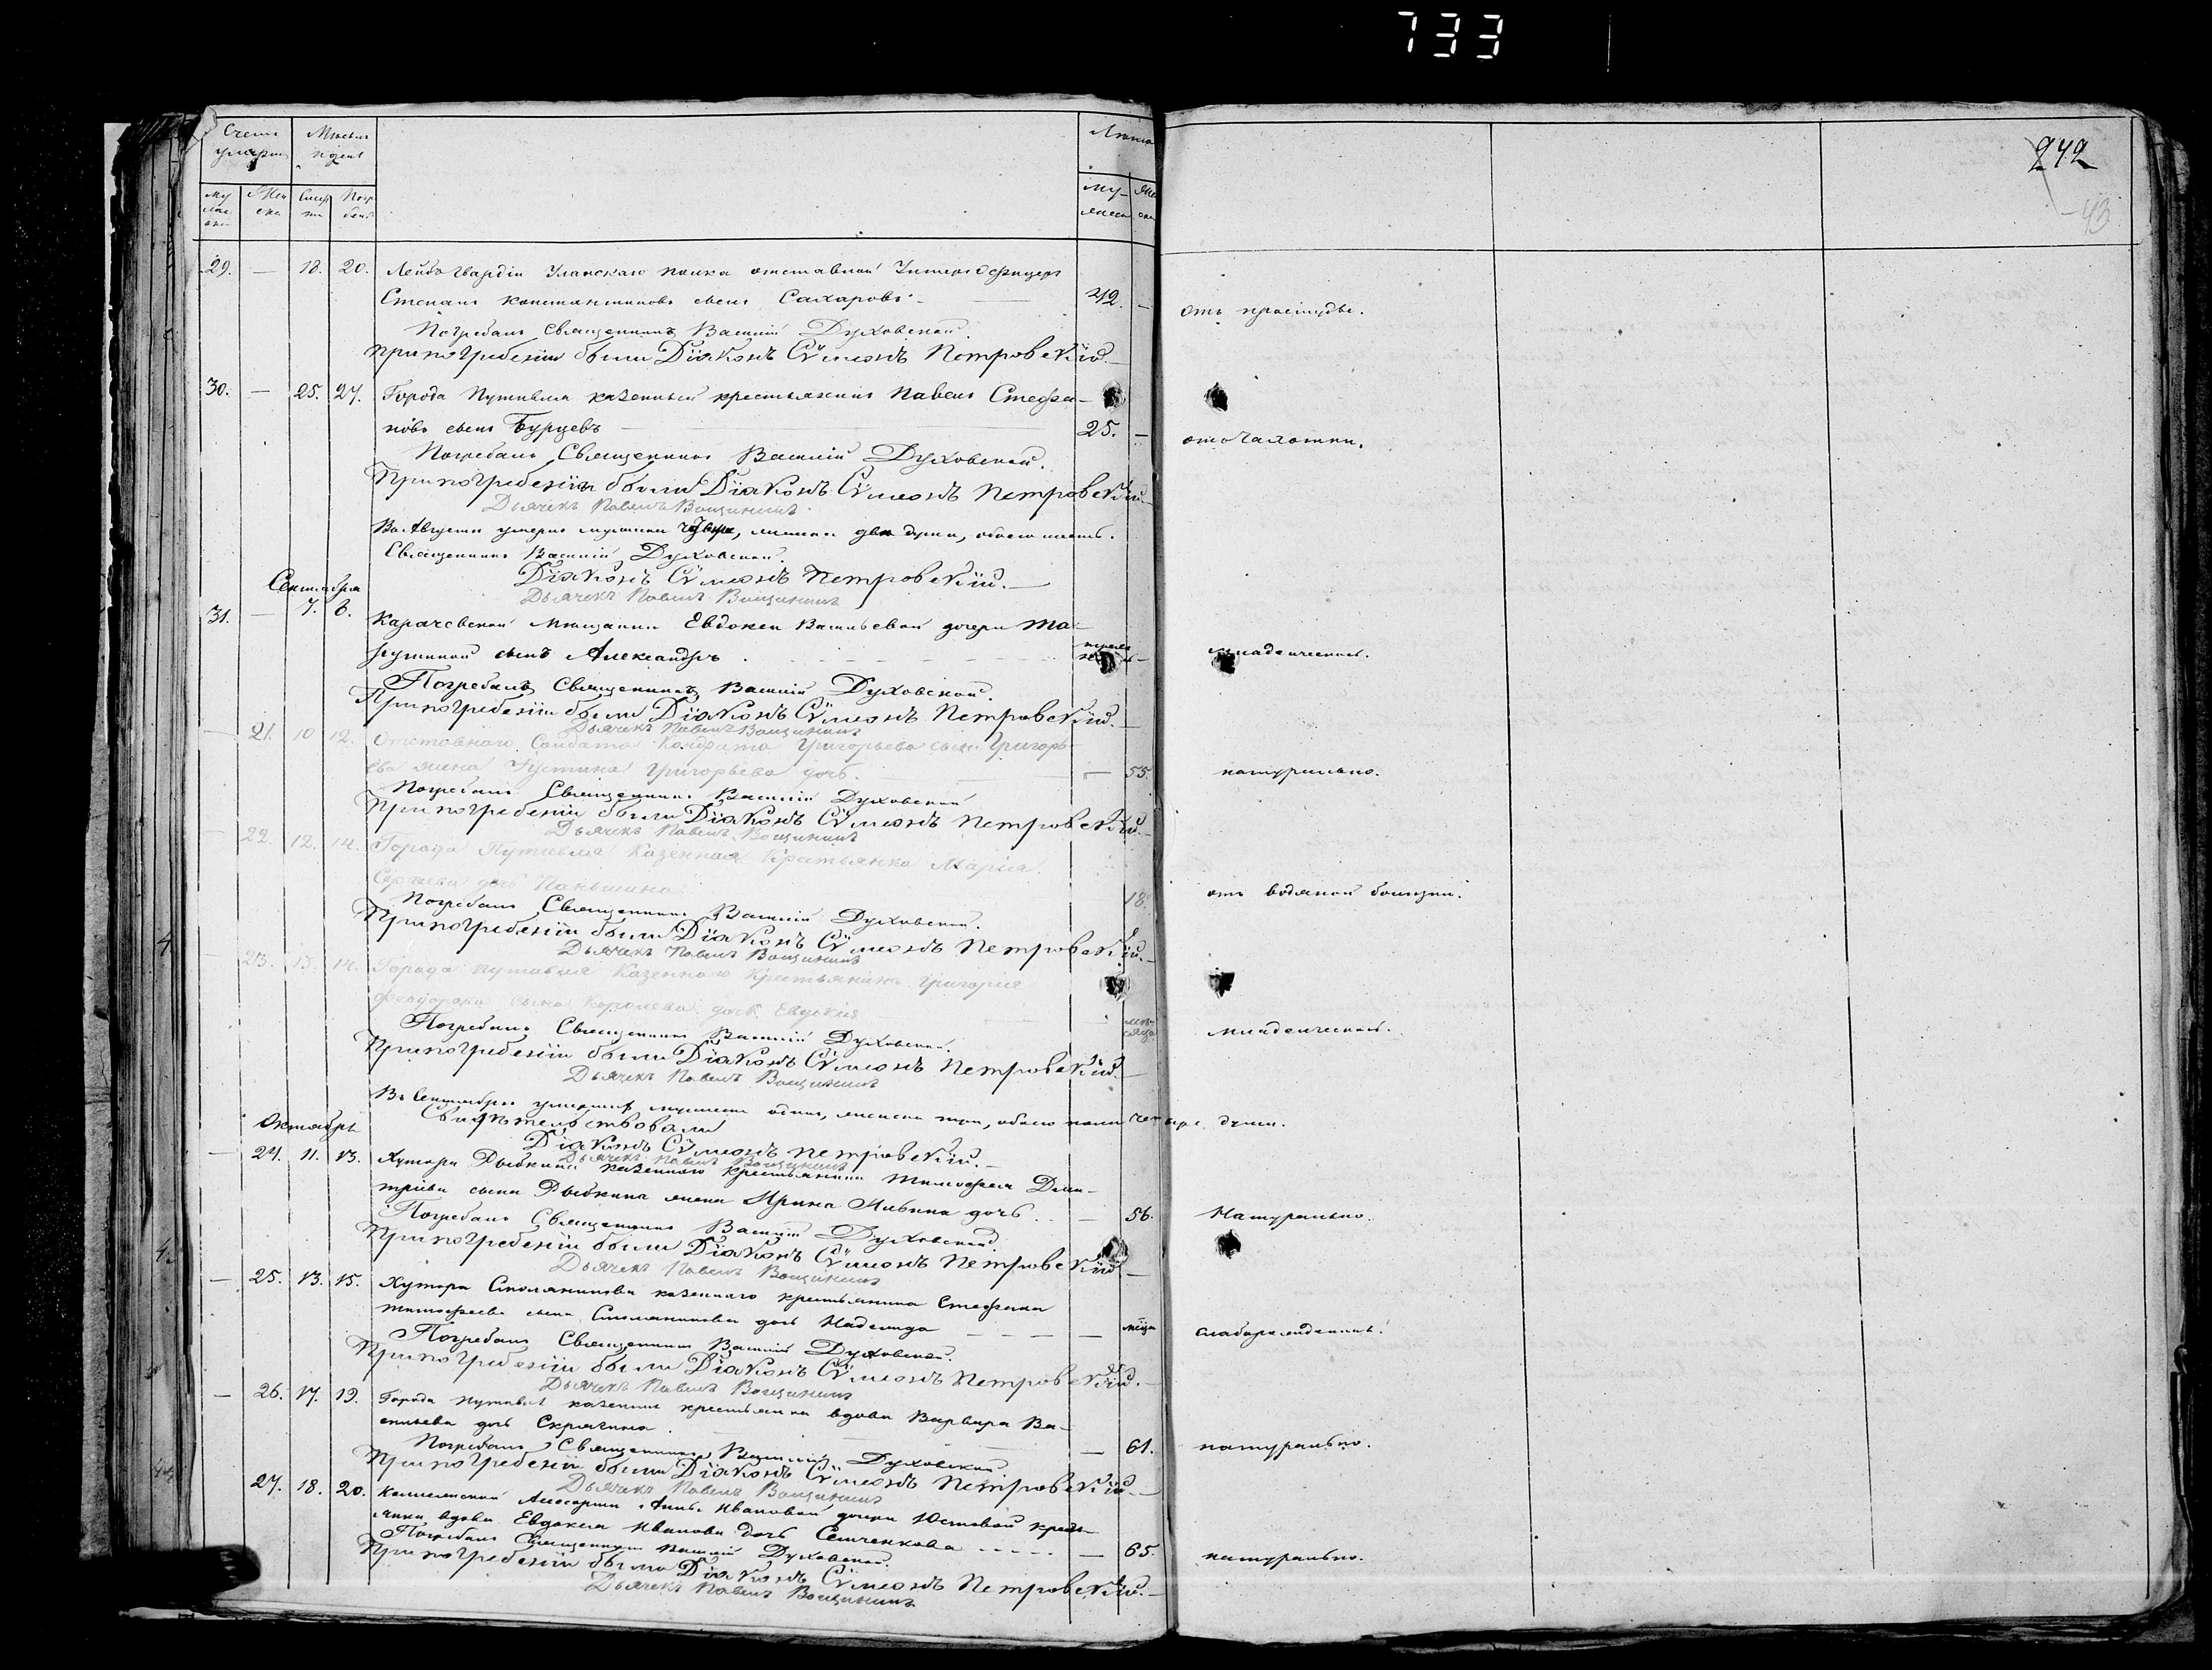 733
242
43
Счетъ умерш. Мѣсяцъ и день Лѣта
Му жес ска Жен ска Смер ти Погр бенія Му- жеск Же ска
29. — 18. 20. Лейбъ Гвардіи Уланскаго полка отставной Унтеръ Офицеръ
Стефанъ Константиновъ сынъ Сахаровъ — 42. — отъ простуды.
Погребалъ Священникъ Василій Духовской.
При погребеніи были Діаконъ Сѷмеонъ Петровскій.
30. — 25. 27. Города Путивля казенный крестьянинъ Павелъ Стефа-
новъ сынъ Бурцевъ — 25. — отъ чахотки.
Погребалъ Священникъ Василій Духовской.
При погребеніи были Діаконъ Сѷмеонъ Петровскій.
Дьячекъ Павелъ Вощининъ
Въ Августѣ умерло мужеска, женска двѣ души, обоего
Священникъ Василій Духовской.
Діаконъ Сѷмеонъ Петровскій.
Сентября Дьячекъ Павелъ Вощининъ
31. — 7. 8. Карачевской Мѣщанки Евдокеи Васильевой дочери
сынъ Александръ младенческой.
Погребалъ Священникъ Василій Духовской.
При погребеніи были Діаконъ Сѷмеонъ Петровскій.
Дьячекъ Павелъ Вощининъ
— 21. 10 12. Отставного Солдата Кондрата Григорьева сына Григорь-
ева жена Устина Григорьева дочь. — 55. натурально.
Погребалъ Священникъ Василій Духовской
При погребеніи были Діаконъ Сѷмеонъ Петровскій.
Дьячекъ Павелъ Вощининъ
— 22. 12. 14. Города Путивля Казенная Крестьянка Марія
Сергѣева дочь Паньшина 18. отъ водяной болѣзни.
Погребалъ Священникъ Василій Духовской.
При погребеніи были Діаконъ Сѷмеонъ Петровскій.
Дьячекъ Павелъ Вощининъ
— 23. 13. 14. Города Путивля Казенного Крестьянина Григорія
Феодорова сына Королева дочь Евдокія — младенческой.
Погребалъ Священникъ Василій Духовской.
При погребеніи были Діаконъ Сѷмеонъ Петровскій
Дьячекъ Павелъ Вощининъ
Въ Сентябрѣ умерло мужеска одинъ, женска три, обоего пола четыре души.
Свидѣтельствовали
Октябрь Діаконъ Сѷмеонъ Петровскій.
Дьячекъ Павелъ Вощининъ
— 24. 11. 13. Хутора Рыбкина казеннаго крестьянина Тимофея Дми-
тріева сына Рыбкина жена Ирина дочь — 56. Натурально.
Погребалъ Священникъ Василій Духовской.
При погребеніи были Діаконъ Сѷмеонъ Петровскій
Дьячекъ Павелъ Вощининъ
— 25. 13. 15. Хутора Смолянинова казеннаго крестьянина Стефана
Тимофеева сына Смолянинова дочь Надежда — слаборожденный.
Погребалъ Священникъ Василій Духовской.
При погребеніи были Діаконъ Сѷмеонъ Петровскій.
Дьячекъ Павелъ Вощининъ
— 26. 17. 19. Города Путивля казенная крестьянка вдова Варвара Ва-
сильева дочь — 61. натурально.
Погребалъ Священникъ Василій Духовской
При погребеніи были Діаконъ Сѷмеонъ Петровскій.
Дьячекъ Павелъ Вощининъ
27. 18. 20. Анны Ивановой дочери Юстовой
вдова Евдокея Иванова дочь Семченкова — 65. натурально.
Погребалъ Священникъ Василій Духовской.
При погребеніи были Діаконъ Сѷмеонъ Петровскій.
Дьячекъ Павелъ Вощининъ